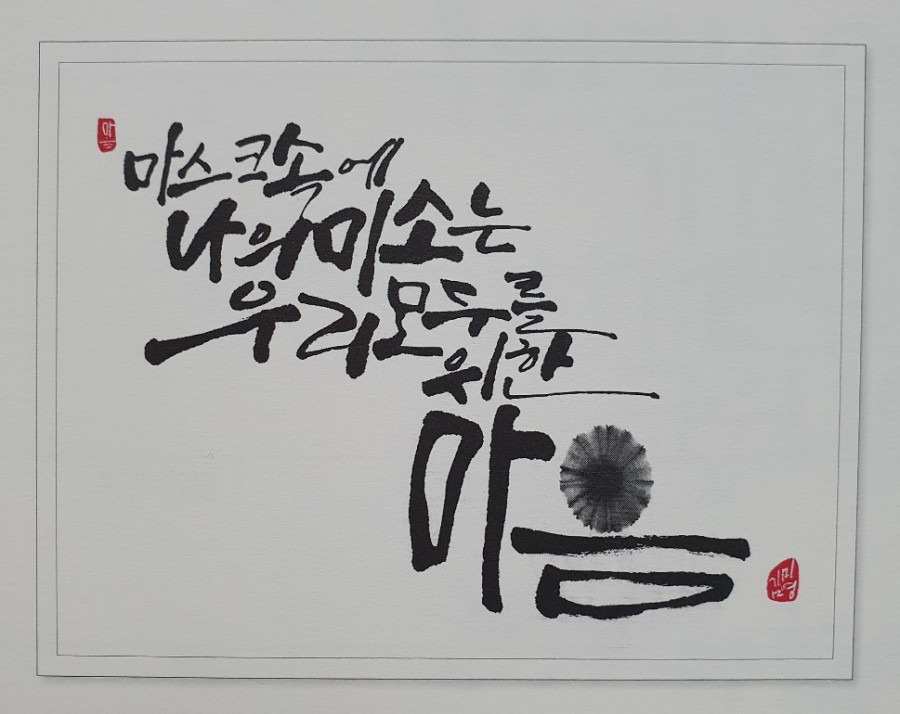 마스크속에
나의미소는
우리모두를
위한
마음